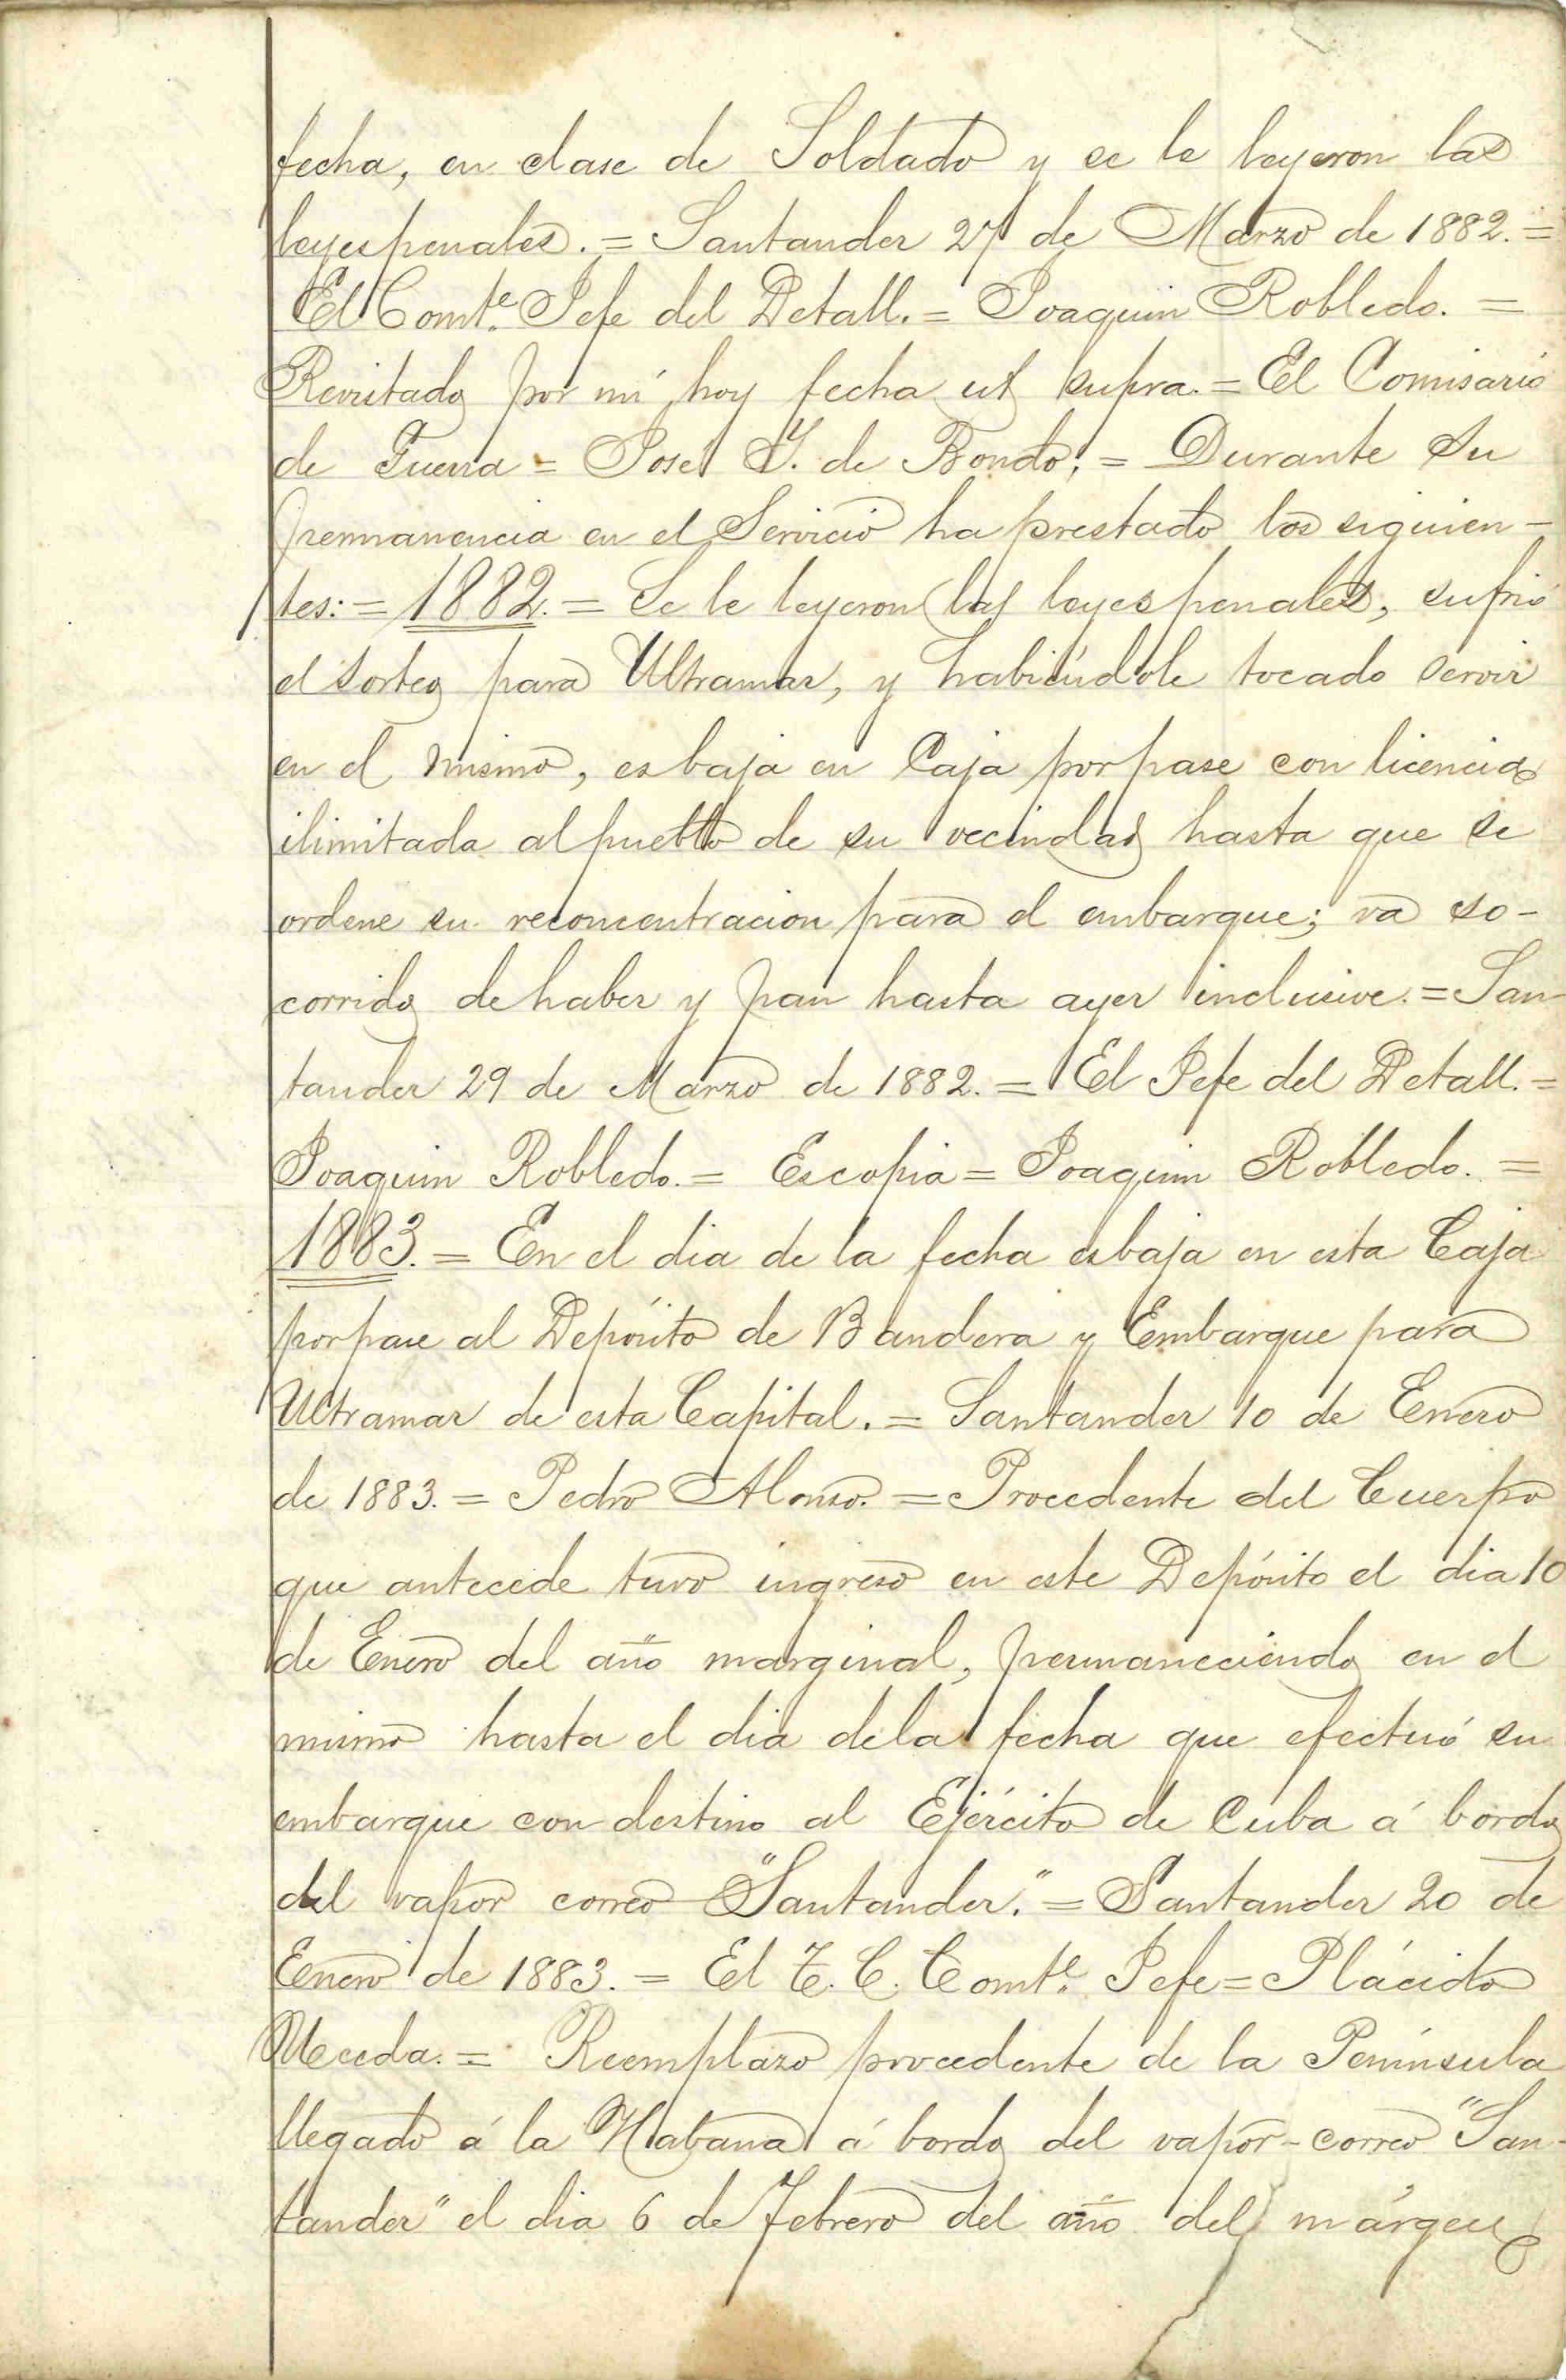 fecha, en clase de Soldado y se le leyeron las
leyes penales. = Santander 27 de Marzo de 1882. =
El Comte. Jefe del Detall. = Joaquin Robledo. =
Revistado por mí hoy fecha ut supra. = El Comisario
de Guerra = José Y. de Bondo; = Durante su
permanencia en el Servicio ha prestado los siguien-
tes: = 1882. = Se le leyeron las leyes penales, sufrió
el sorteo para Ultramar, y habiéndole tocado servir
en el mismo, es baja en Caja por pase con licencia
ilimitada al pueblo de su vecindad hasta que se
ordene su reconcentracion para el embarque; va so-
corrido de haber y pan hasta ayer inclusive. = San
tander 29 de Marzo de 1882. = El Jefe del Detall. =
Joaquin Robledo. = Es copia = Joaquin Robledo. =
1883. = En el dia de la fecha es baja en esta Caja
por pase al Depósito de Bandera y Embarque para
Ultramar de esta Capital. = Santander 10 de Enero
de 1883. = Pedro Alonso. = Procedente del Cuerpo
que antecede tuvo ingreso en este Depósito el dia 10
de Enero del año marginal, permaneciendo en el
mismo hasta el dia de la fecha que efectuó su
embarque con destino al Ejército de Cuba á bordo
del vapor correo "Santander." = Santander 20 de
Enero de 1883. = El T. C. Comte. Jefe = Plácido
Uceda. = Reemplazo procedente de la Península
llegado á la Habana á bordo del vapor-correo "San-
tander" el dia 6 de Febrero del año del márgen